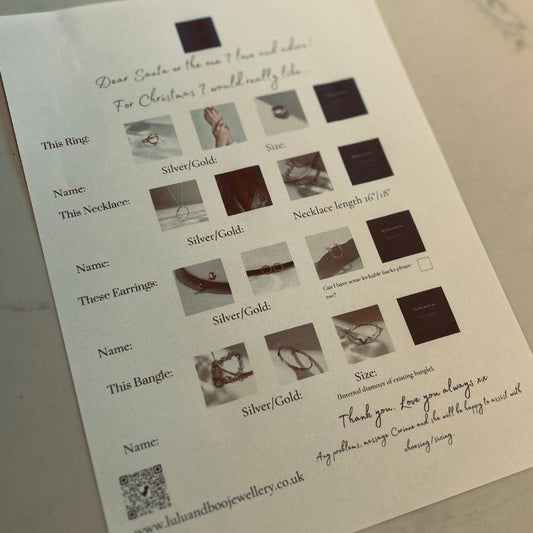 Dear Santa or the one I love and adore!
For Christmas I would really like...
This Ring:
Silver/Gold:
Size:
Name:
This Necklace:
Silver/Gold:
Necklace length 16"/18"
Name:
These Earrings:
Silver/Gold:
Can I have some lockable backs please
too?
Name:
This Bangle:
Silver/Gold:
Size:
(Internal diameter of existing bangle).
Name:
Thank you. Love you always xx
Any problems, message Corinne and she will be happy to assist with
choosing/sizing
www.luluandboojewellery.co.uk